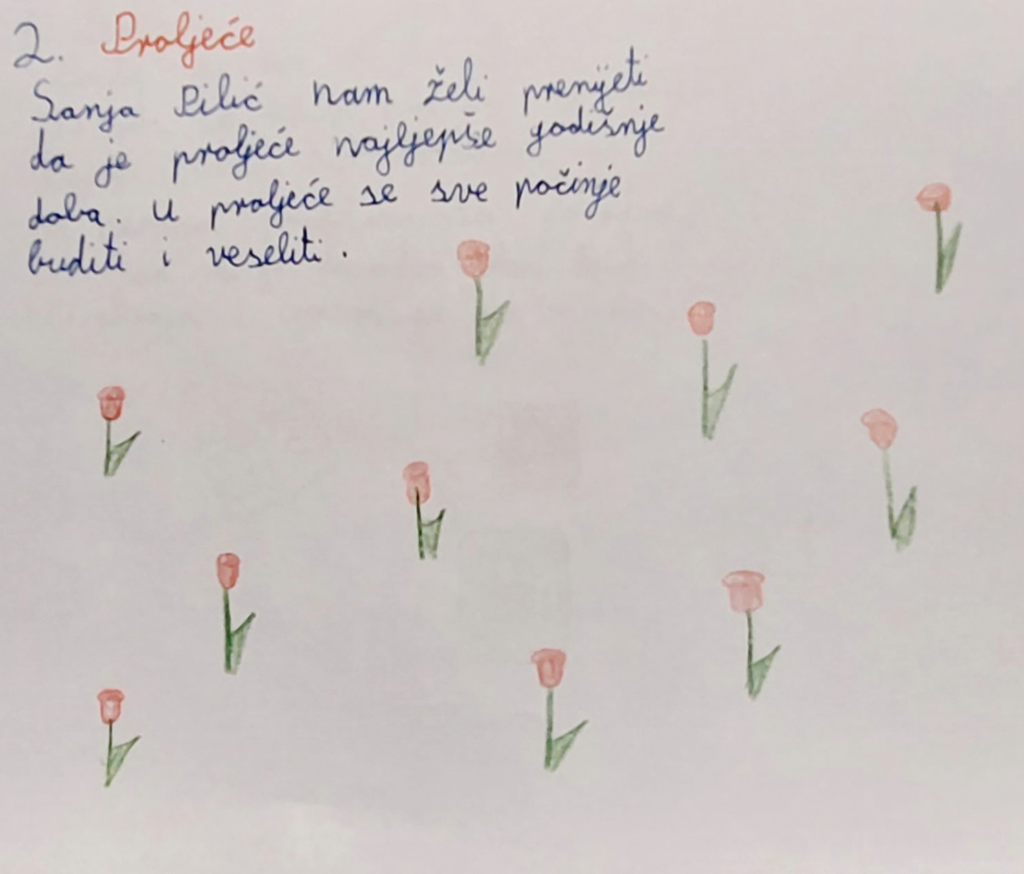 2. Proljeće
Sanja Pilić nam želi prenijeti
da je proljeće najljepše godišnje
doba. U proljeće se sve počinje
buditi i veseliti.